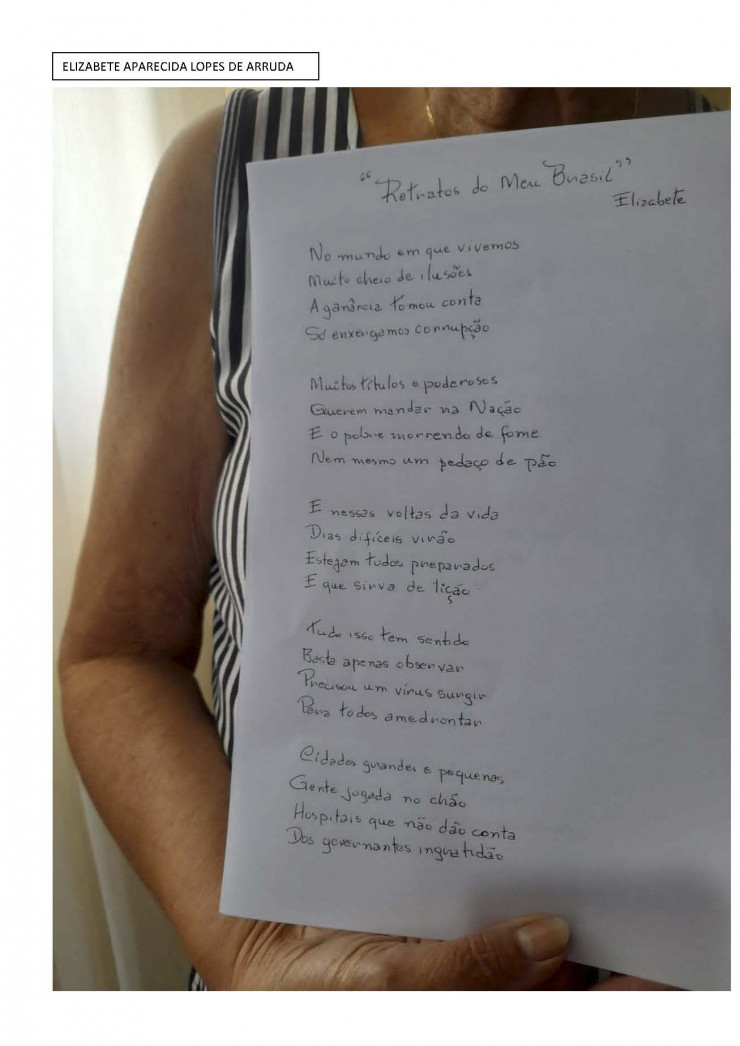 ELIZABETE APARECIDA LOPES DE ARRUDA
"Retratos do Meu Brasil"
Elizabete
No mundo em que vivemos
Muito cheio de ilusões
A ganância tomou conta
Só enxergamos corrupção
Muitos títulos e poderosos
Querem mandar na Nação
E o pobre morrendo de fome
Nem mesmo um pedaço de pão
E nessas voltas da vida
Dias difíceis virão
Estejam todos preparados
E que sirva de lição
Tudo isso tem sentido
Basta apenas observar
Precisou um vírus surgir
Para todos amedrontar
Cidades grandes e pequenas,
Gente jogada no chão
Hospitais que não dão conta
Dos governantes ingratidão